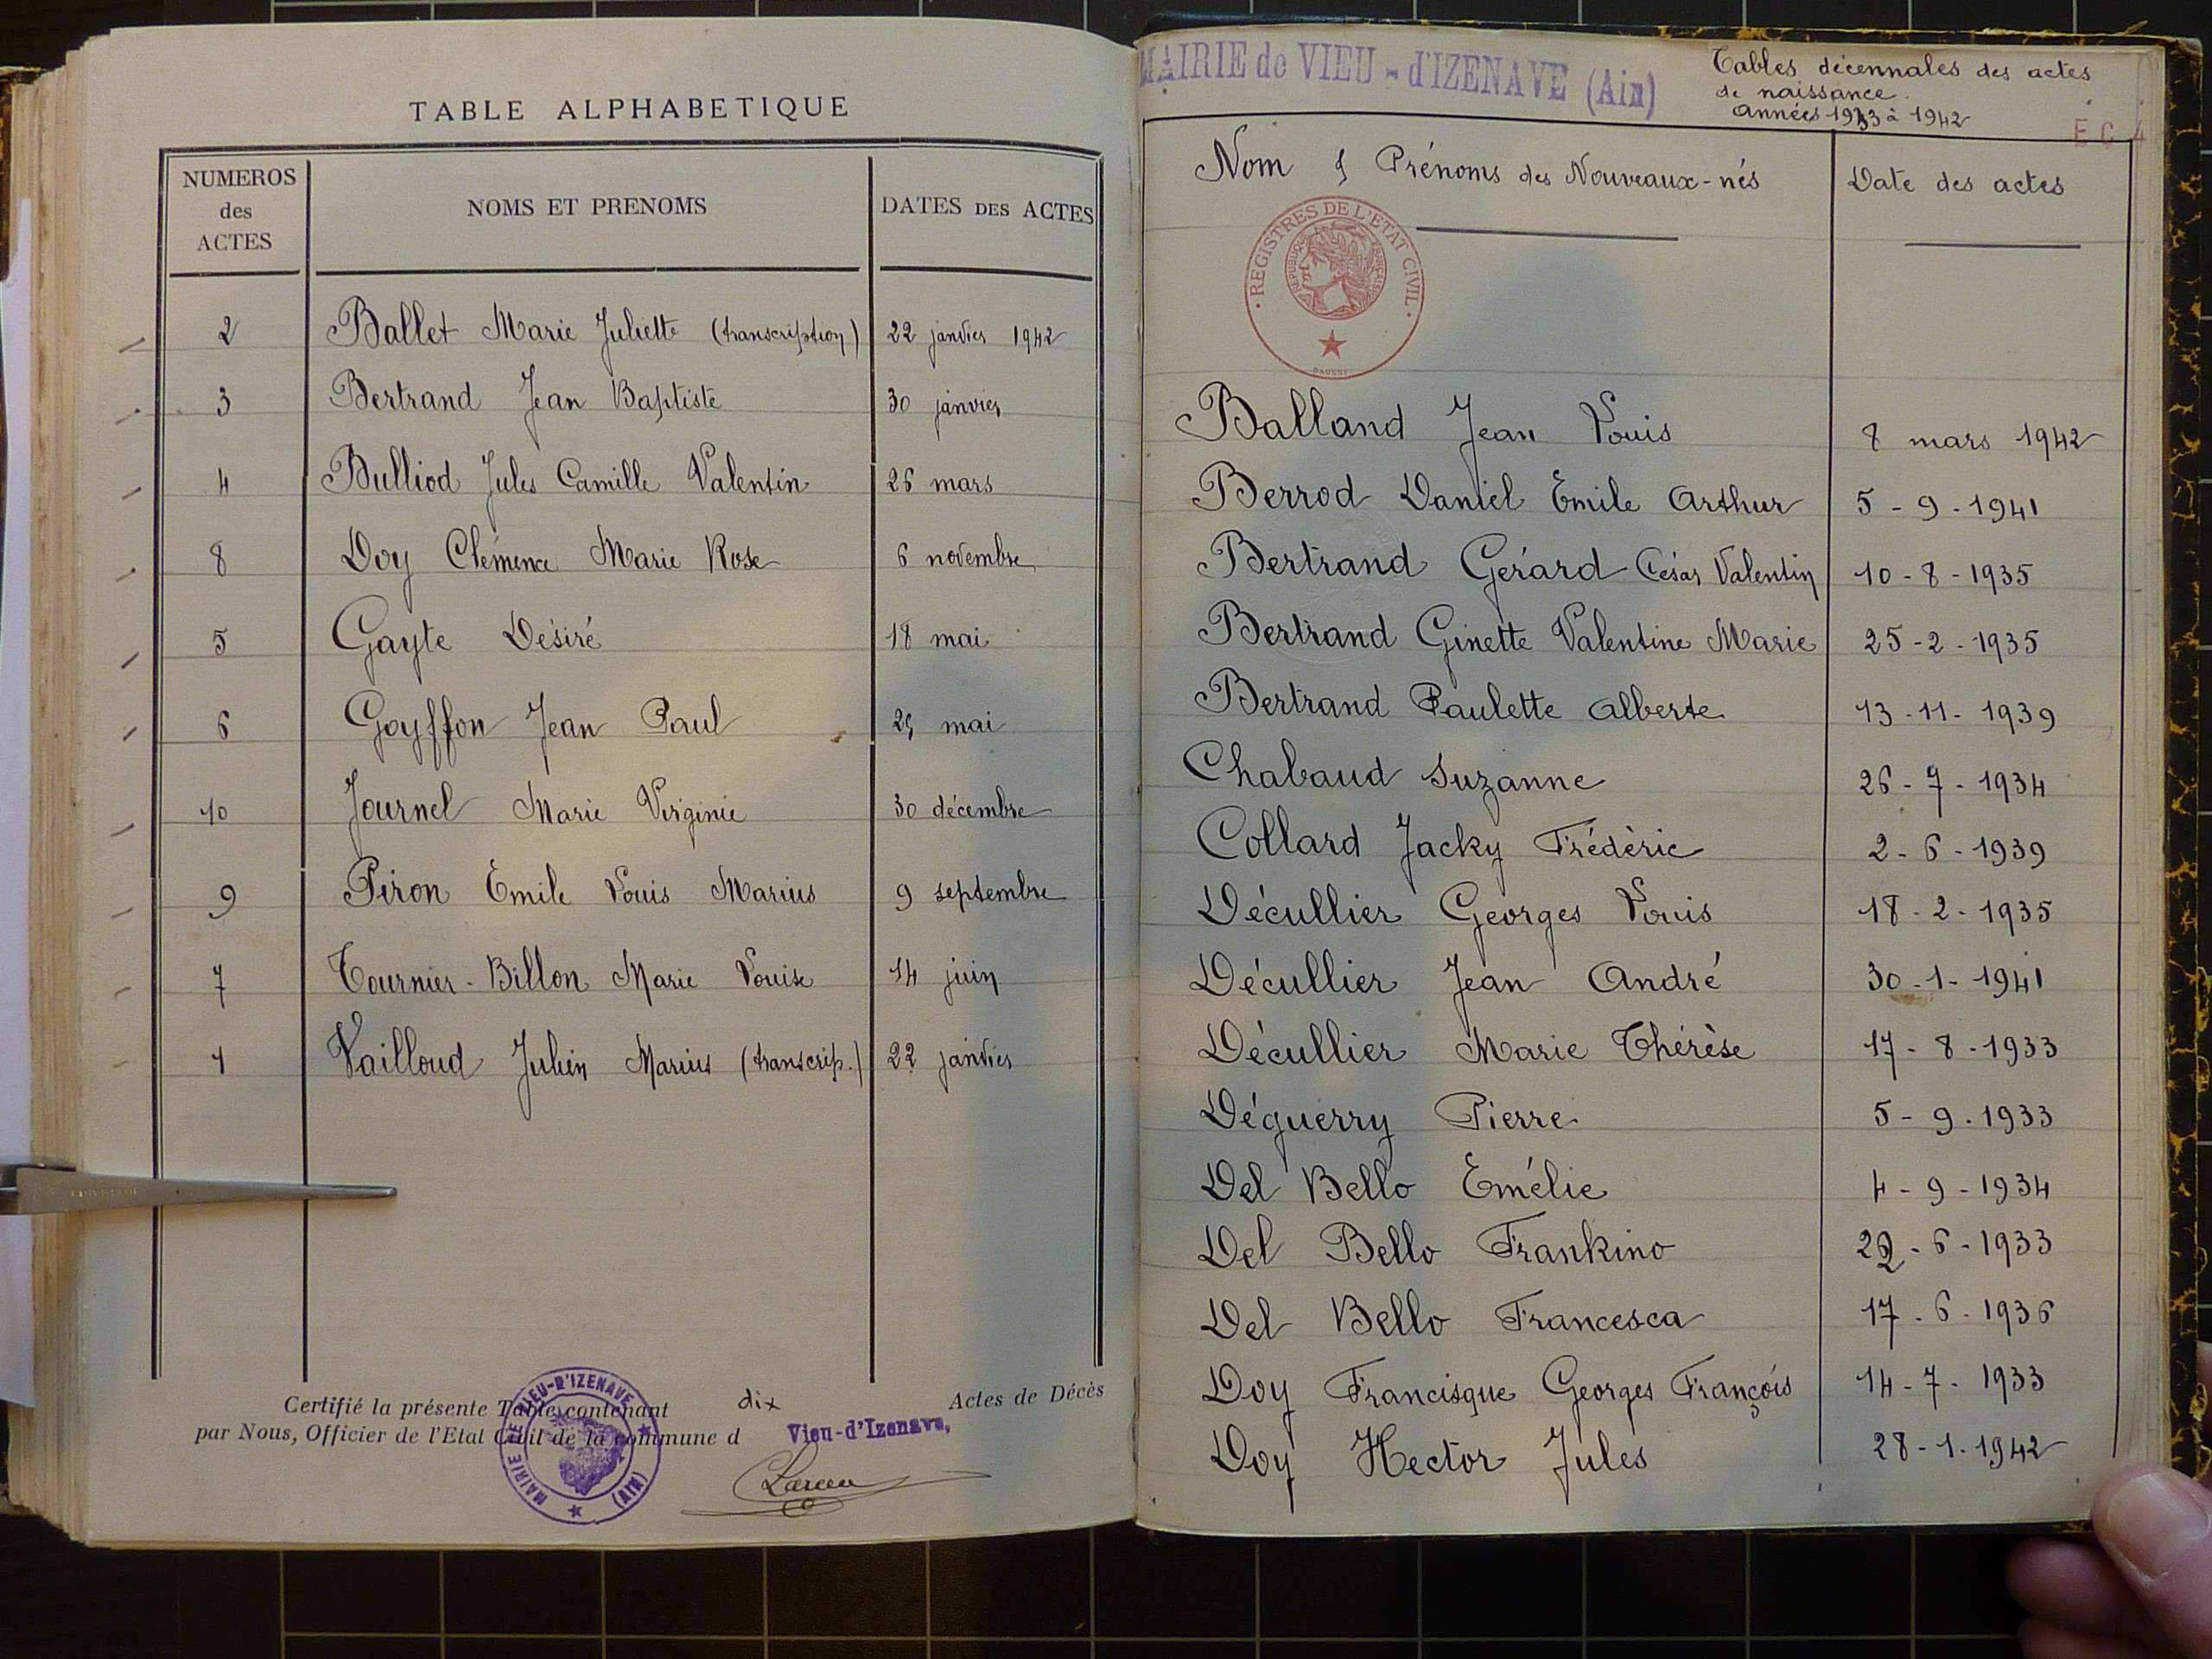 TABLE ALPHABETIQUE
NUMEROS des ACTES NOMS ET PRENOMS DATES DES ACTES
2 Ballet Marie Juliette (transcription) 22 janvier 1942
3 Bertrand Jean Baptiste 30 janvier
4 Bulliod Jules Camille Valentin 26 mars
8 Doy Clémence Marie Rose 6 novembre
5 Gayte Désiré 18 mai
6 Goyffon Jean Paul mai
10 Journel Marie Virginie 30 décembre
9 Piron Emile Louis Marius 9 septembre
7 Tournier-Billon Marie Louise 14 juin
1 Vailloud Julien Marius (transcrip.) 22 janvier
Certifié la présente Table contenant dix Actes de Décès
par Nous, Officier de l'Etat Civil de la commune d Vieu-d'Izenave,
MAIRIE DE VIEU-D'IZENAVE (AIN)
MAIRIE de VIEU-d'IZENAVE (Ain)
Tables décennales des actes
de naissance.
Années 1933 à 1942
E C 4
Nom & Prénoms des Nouveaux-nés Date des actes
REGISTRES DE L'ETAT CIVIL
REPUBLIQUE FRANÇAISE
Balland Jean Louis 8 mars 1942
Berrod Daniel Emile Arthur 5-9-1941
Bertrand Gérard César Valentin 10-8-1935
Bertrand Ginette Valentine Marie 25-2-1935
Bertrand Paulette Alberte 13-11-1939
Chabaud Suzanne 26-7-1934
Collard Jacky Frédéric 2-6-1939
Décullier Georges Louis 18-2-1935
Décullier Jean André 30-1-1941
Décullier Marie Thérèse 17-8-1933
Déguerry Pierre 5-9-1933
Del Bello Emélie 4-9-1934
Del Bello Frankino 22-6-1933
Del Bello Francesca 17-6-1936
Doy Francisque Georges François 14-7-1933
Doy Hector Jules 28-1-1942